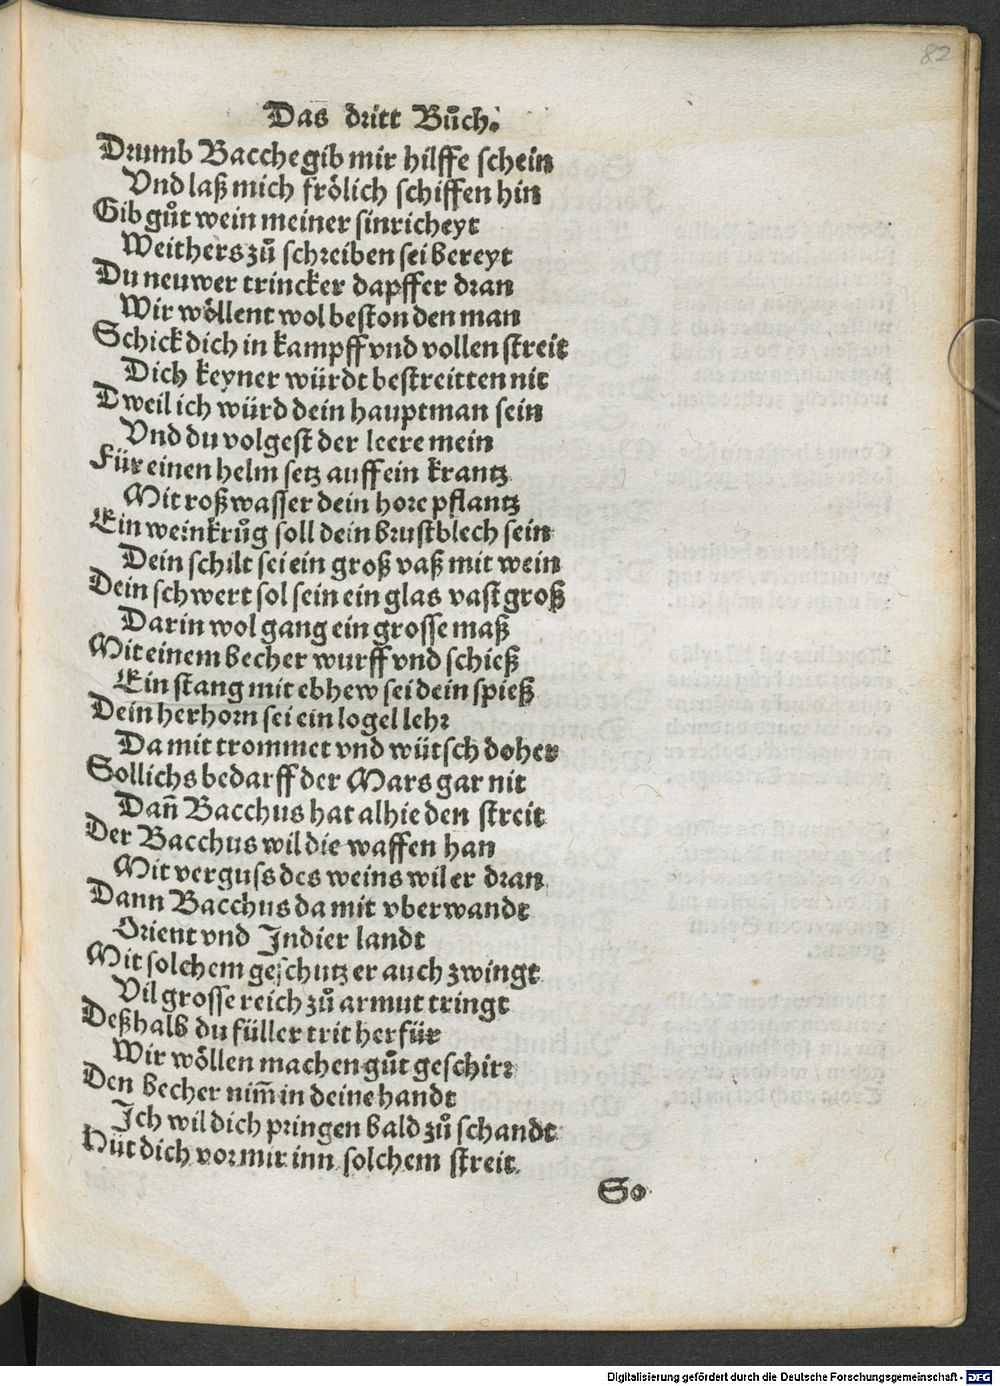 82
Das dritt Bůch.
Drumb Bacche gib mir hilffe schein
Vnd laß mich frölich schiffen hin
Gib gůt wein meiner sinricheyt
Weithers zů schreiben sei bereyt
Du neuwer trincker dapffer dran
Wir wöllent wol beston den man
Schick dich in kampff vnd vollen streit
Dich keyner würdt bestreitten nit
Dweil ich würd dein hauptman sein
Vnd du volgest der leere mein
Für einen helm setz auff ein krantz
Mit roßwasser dein hore pflantz
Ein weinkrůg soll dein brustblech sein
Dein schilt sei ein groß vaß mit wein
Dein schwert sol sein ein glas vast groß
Darin wol gang ein grosse maß
Mit einem becher wurff vnd schieß
Ein stang mit ebhew sei dein spieß
Dein herhorn sei ein logel lehr
Da mit trommet vnd wütsch doher
Sollichs bedarff der Mars gar nit
Dañ Bacchus hat alhie den streit
Der Bacchus wil die waffen han
Mit verguss des weins wil er dran
Dann Bacchus da mit vberwandt
Orient vnd Jndier landt
Mit solchem geschutz er auch zwingt
Vil grosse reich zů armut tringt
Deßhalb du füller trit herfür
Wir wöllen machen gůt geschirr
Den becher nim̃ in deine handt
Jch wil dich pringen bald zů schandt
Hüt dich vor mir inn solchem streit.
So
Digitalisierung gefördert durch die Deutsche Forschungsgemeinschaft - DFG